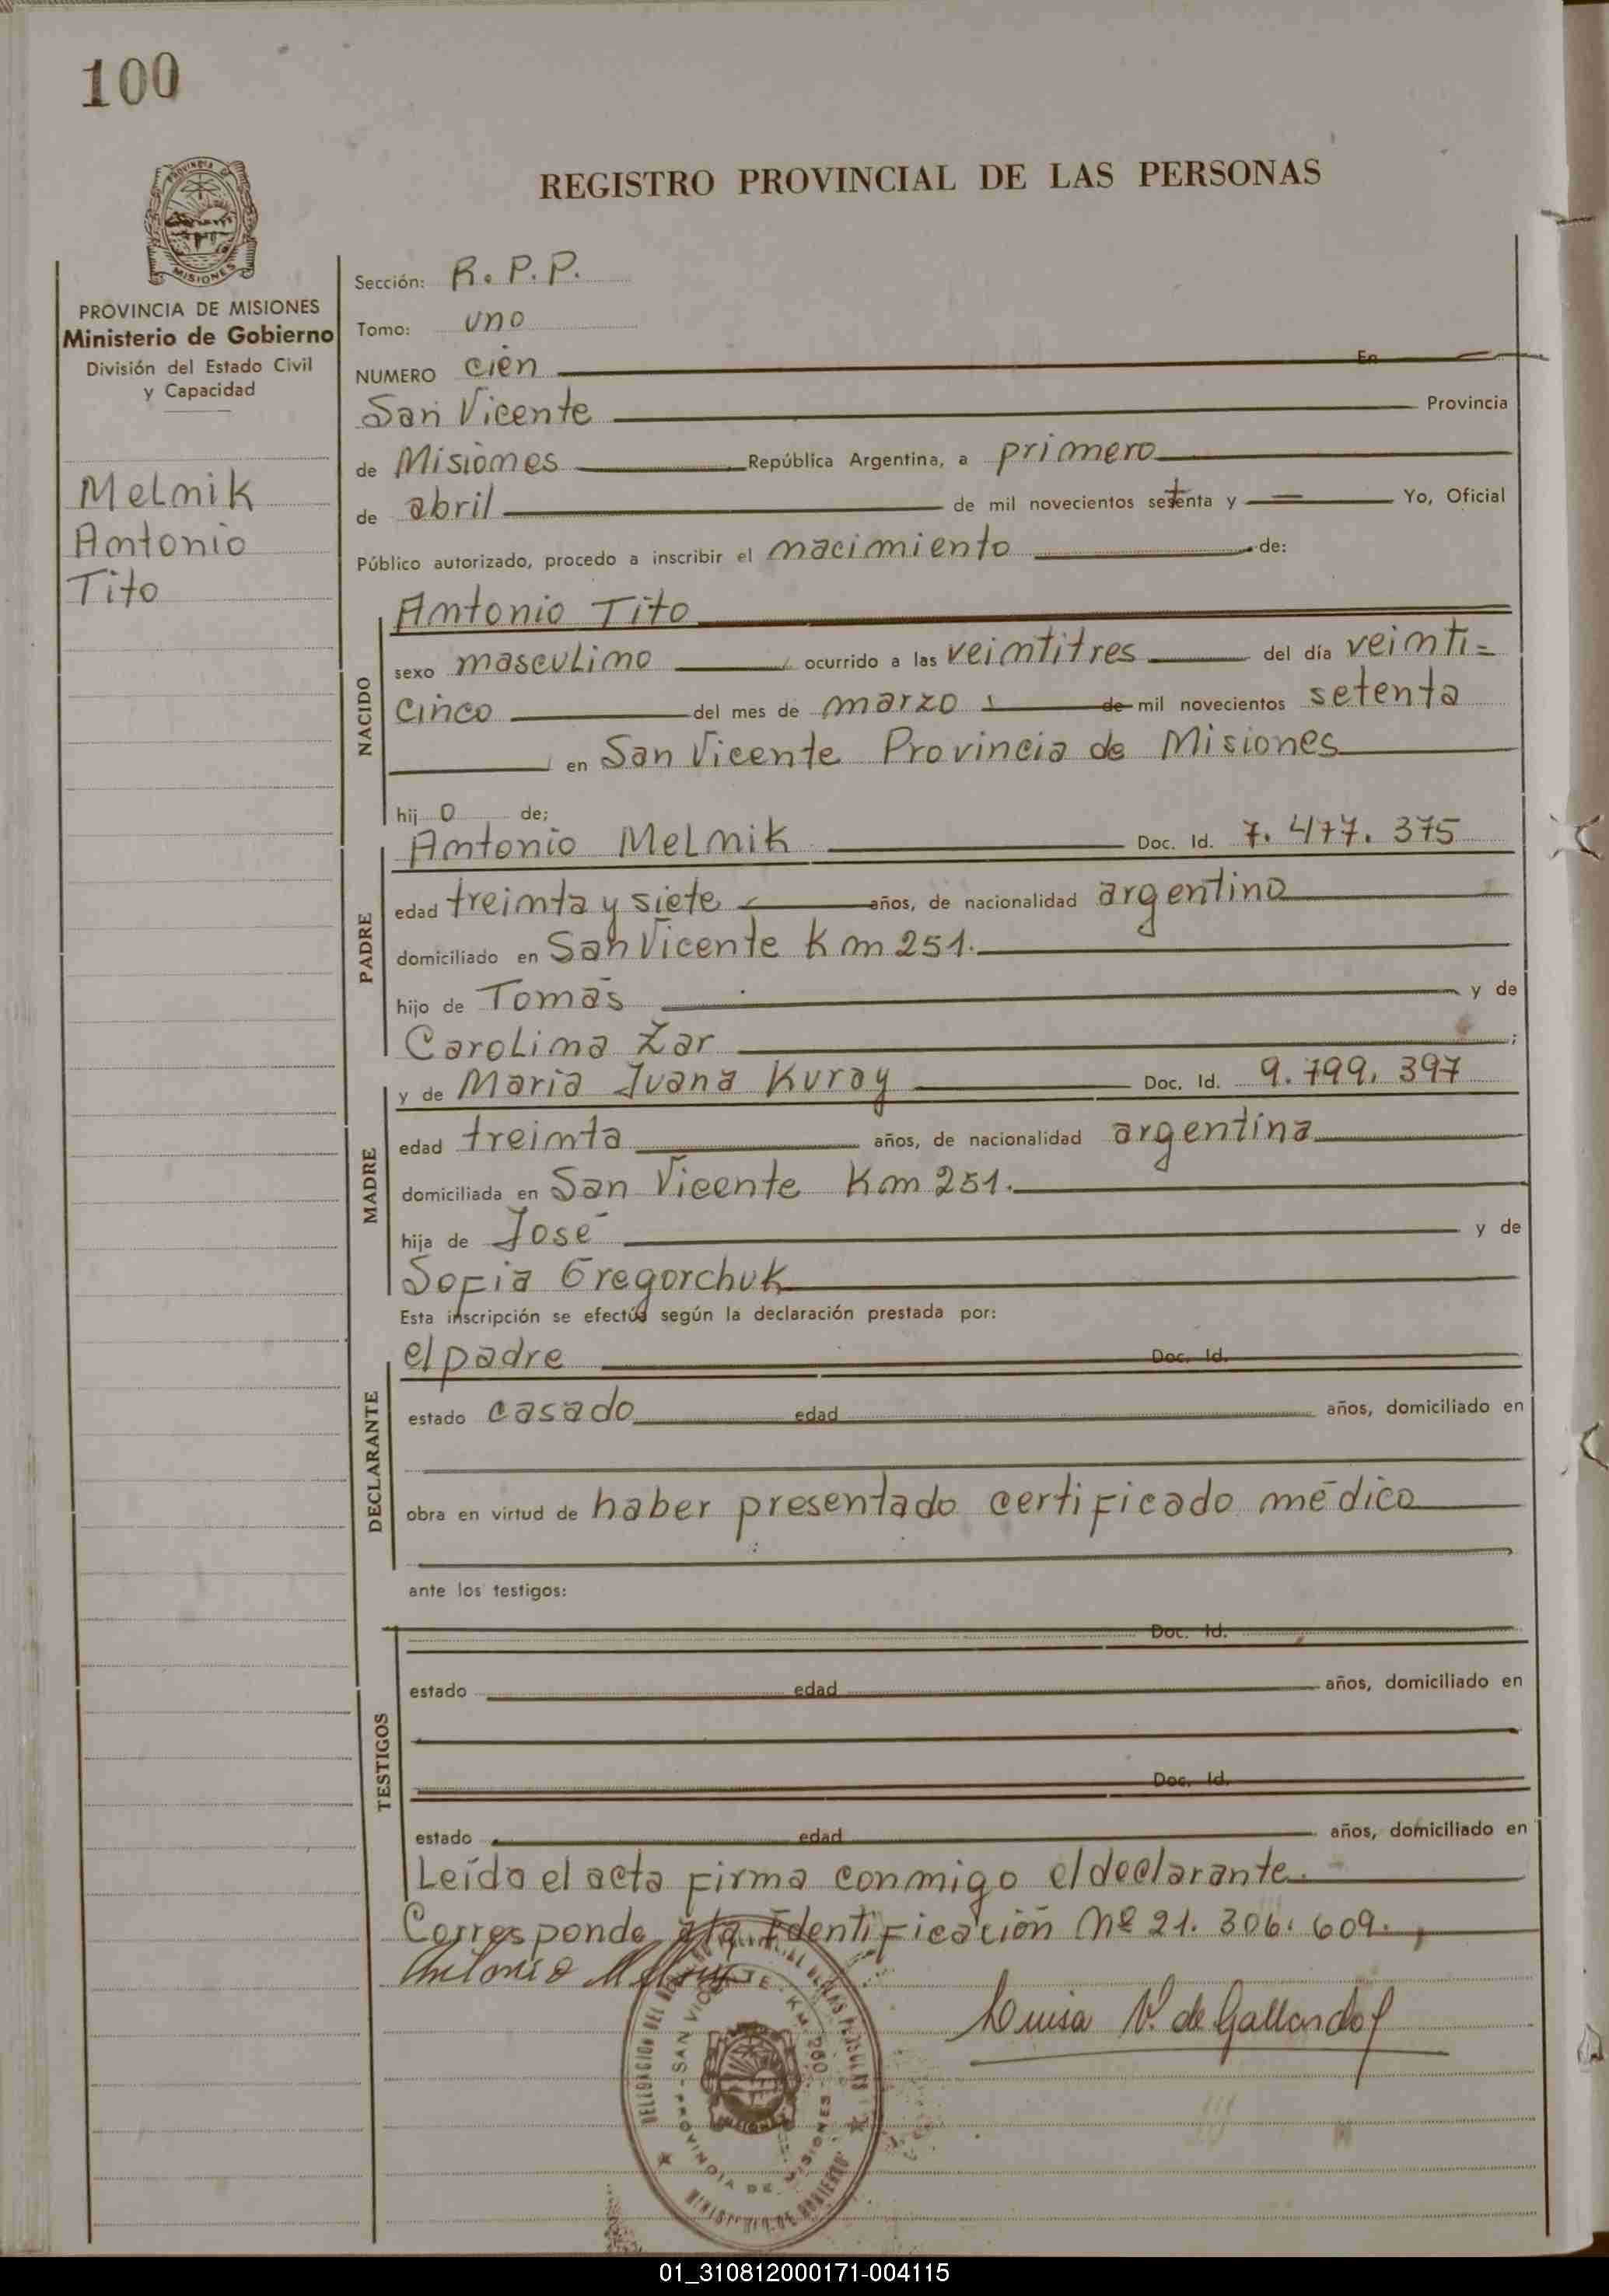 100
REGISTRO PROVINCIAL DE LAS PERSONAS
PROVINCIA DE MISIONES
Ministerio de Gobierno
División del Estado Civil
y Capacidad
Melnik
Antonio
Tito
Sección: R. P. P.
Tomo: uno
NUMERO cien En
San Vicente Provincia
de Misiones República Argentina, a primero
de abril de mil novecientos setenta y Yo, Oficial
Público autorizado, procedo a inscribir el nacimiento de:
NACIDO
Antonio Tito
sexo masculino ocurrido a las veintitres del día veinti=
cinco del mes de marzo de mil novecientos setenta
en San Vicente Provincia de Misiones
hij o de;
PADRE
Antonio Melnik Doc. Id. 7.477.375
edad treinta y siete años, de nacionalidad argentino
domiciliado en San Vicente Km 251.
hijo de Tomás y de
Carolina Zar ;
MADRE
y de Maria Juana Kuray Doc. Id. 9.799.397
edad treinta años, de nacionalidad argentina
domiciliada en San Vicente Km 251.
hija de José y de
Sofia Gregorchuk
Esta inscripción se efectúa según la declaración prestada por:
DECLARANTE
el padre Doc. Id.
estado casado edad años, domiciliado en
obra en virtud de haber presentado certificado médico
ante los testigos:
TESTIGOS
Doc. Id.
estado edad años, domiciliado en
Doc. Id.
estado edad años, domiciliado en
Leída el acta firma conmigo el declarante.
Corresponde a la Identificación Nº 21.306.609.
Antonio Melnik
Luisa V. de Gallardo
DELEGACION DEL REGISTRO PROVINCIAL DE LAS PERSONAS
SAN VICENTE - KM. 260 -
PROVINCIA DE MISIONES
MINISTERIO DE GOBIERNO
01_310812000171-004115